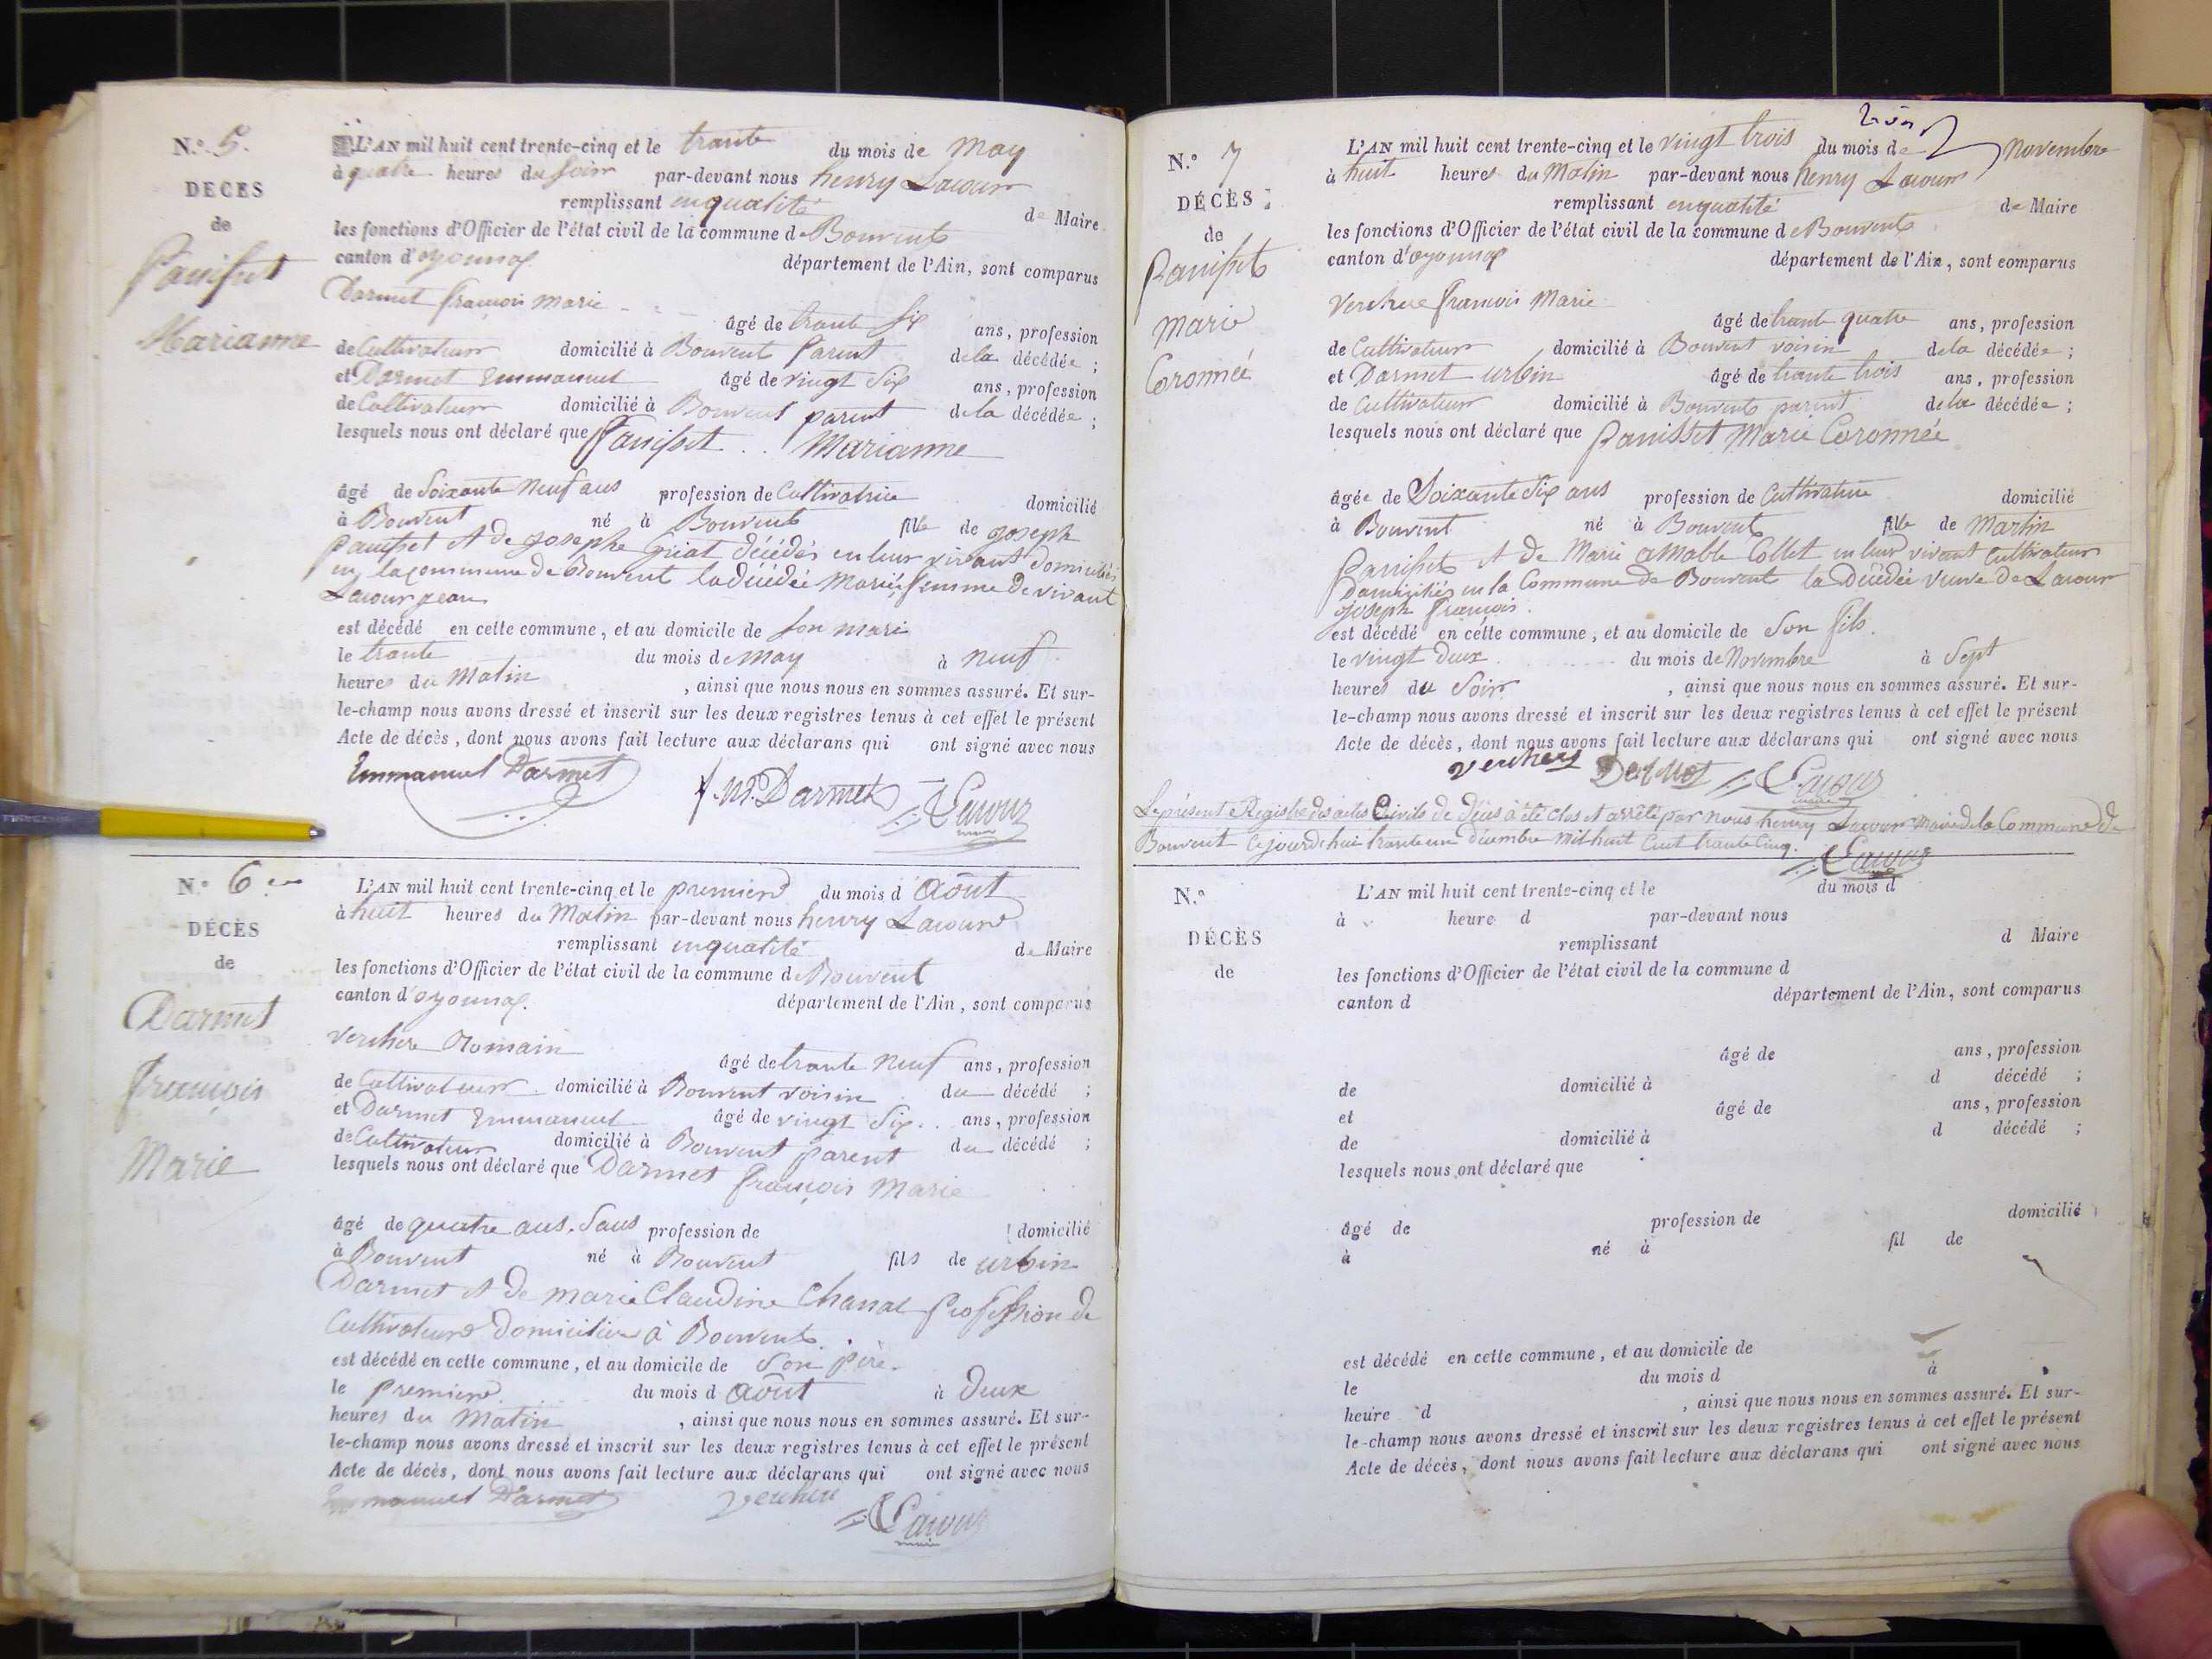 N.° 5.
DÉCÈS
de
Panisset
Marianne
L'AN mil huit cent trente-cinq et le trante du mois de May
à quatre heures du soir par-devant nous henry Lacour
remplissant enqualité de Maire
les fonctions d'Officier de l'état civil de la commune de Bouvent
canton d'oyonnax département de l'Ain, sont comparus
Darmet françois marie
âgé de trante six ans, profession
de Cultivateur domicilié à Bouvent parent de la décédée ;
et Darmet Emmanuel âgé de vingt six ans, profession
de Cultivateur domicilié à Bouvent parent de la décédée ;
lesquels nous ont déclaré que Panisset Marianne
âgé de Soixante neuf ans profession de Cultivatrice domicilié
à Bouvent né à Bouvent fille de joseph
panisset et de josephe décédés en leur vivant domiciliés
en la commune de Bouvent la décédée Mariée femme de vivant
Lacour jean
est décédé en cette commune, et au domicile de son mari
le trante du mois de may à neuf
heures du Matin, ainsi que nous nous en sommes assuré. Et sur-
le-champ nous avons dressé et inscrit sur les deux registres tenus à cet effet le présent
Acte de décès, dont nous avons fait lecture aux déclarans qui ont signé avec nous
Emmanuel Darmet f. m. Darmet Lacour
maire
N.° 6
DÉCÈS
de
Darmet
françois
Marie
L'AN mil huit cent trente-cinq et le premier du mois d Août
à huit heures du Matin par-devant nous henry Lacour
remplissant enqualité de Maire
les fonctions d'Officier de l'état civil de la commune de Bouvent
canton d'oyonnax. département de l'Ain, sont comparus
Verchere Romain
âgé de trante neuf ans, profession
de Cultivateur domicilié à Bouvent voisin du décédé ;
et Darmet Emmanuel âgé de vingt six ans, profession
de Cultivateur domicilié à Bouvent parent du décédé ;
lesquels nous ont déclaré que Darmet françois Marie
âgé de quatre ans. Sans profession de domicilié
à Bouvent né à Bouvent fils de urbin
Darmet et de marie Claudine Chanal profession de
Cultivateurs domiciliés à Bouvent.
est décédé en cette commune, et au domicile de son père.
le premier du mois d Août à deux
heures du matin, ainsi que nous nous en sommes assuré. Et sur-
le-champ nous avons dressé et inscrit sur les deux registres tenus à cet effet le présent
Acte de décès, dont nous avons fait lecture aux déclarans qui ont signé avec nous
Emmanuel Darmet Verchere Lacour
maire
N.° 7
DÉCÈS
de
Panisset
Marie
Coronnée
L'AN mil huit cent trente-cinq et le vingt trois du mois de Novembre
à huit heures du Matin par-devant nous henry Lacour
remplissant enqualité de Maire
les fonctions d'Officier de l'état civil de la commune de Bouvent
canton d'oyonnax département de l'Ain, sont comparus
Verchere françois Marie
âgé de trante quatre ans, profession
de Cultivateur domicilié à Bouvent voisin de la décédée ;
et Darmet urbin âgé de trante trois ans, profession
de Cultivateur domicilié à Bouvent parent de la décédée ;
lesquels nous ont déclaré que Panisset Marie Coronnée
âgée de Soixante six ans profession de Cultivatrice domicilié
à Bouvent né à Bouvent fille de Martin
Panisset et de Marie amable Collet en leur vivant Cultivateurs
Domiciliés en la Commune de Bouvent la Décédée veuve de Lacour
joseph françois.
est décédé en cette commune, et au domicile de son fils.
le vingt deux du mois de Novembre à Sept
heures du Soir, ainsi que nous nous en sommes assuré. Et sur-
le-champ nous avons dressé et inscrit sur les deux registres tenus à cet effet le présent
Acte de décès, dont nous avons fait lecture aux déclarans qui ont signé avec nous
Lacour
Le présent Registre des actes Civils de Décès à été clos et arrêté par nous henry Lacour Maire de la Commune de
Bouvent Cejourdhui trante un décembre mil huit Cent trante Cinq.
Lacour
N.°
DÉCÈS
de
L'AN mil huit cent trente-cinq et le du mois d
à heure d par-devant nous
remplissant d Maire
les fonctions d'Officier de l'état civil de la commune d
canton d département de l'Ain, sont comparus
âgé de ans, profession
de domicilié à d décédé ;
et âgé de ans, profession
de domicilié à d décédé ;
lesquels nous ont déclaré que
âgé de profession de domicilié
à né à fil de
est décédé en cette commune, et au domicile de
le du mois d à
heure d , ainsi que nous nous en sommes assuré. Et sur-
le-champ nous avons dressé et inscrit sur les deux registres tenus à cet effet le présent
Acte de décès, dont nous avons fait lecture aux déclarans qui ont signé avec nous